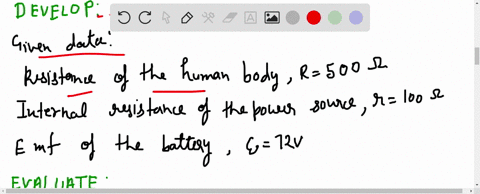 DEVELOP:
Given data:
Resistance of the human body, R = 500 Ω
Internal resistance of the power source, r = 100 Ω
Emf of the battery, ε = 72V
EVALUATE: